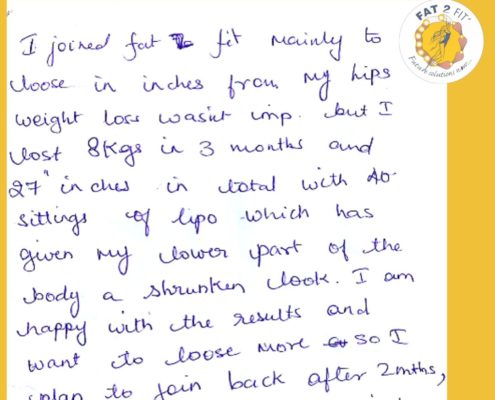 FAT 2 FIT
Future solutions now...
I joined fat 2 fit mainly to
loose in inches from my hips
weight loss wasn't imp. but I
lost 8Kgs in 3 months and
27" inches in total with 40
sittings of lipo which has
given my lower part of the
body a shrunken look. I am
happy with the results and
want to loose more so I
plan to join back after 2mths,